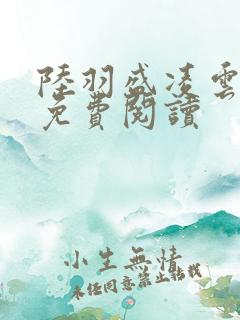 陸羽盛凌雲
免費閱讀
小生無情
未經同意禁止轉載